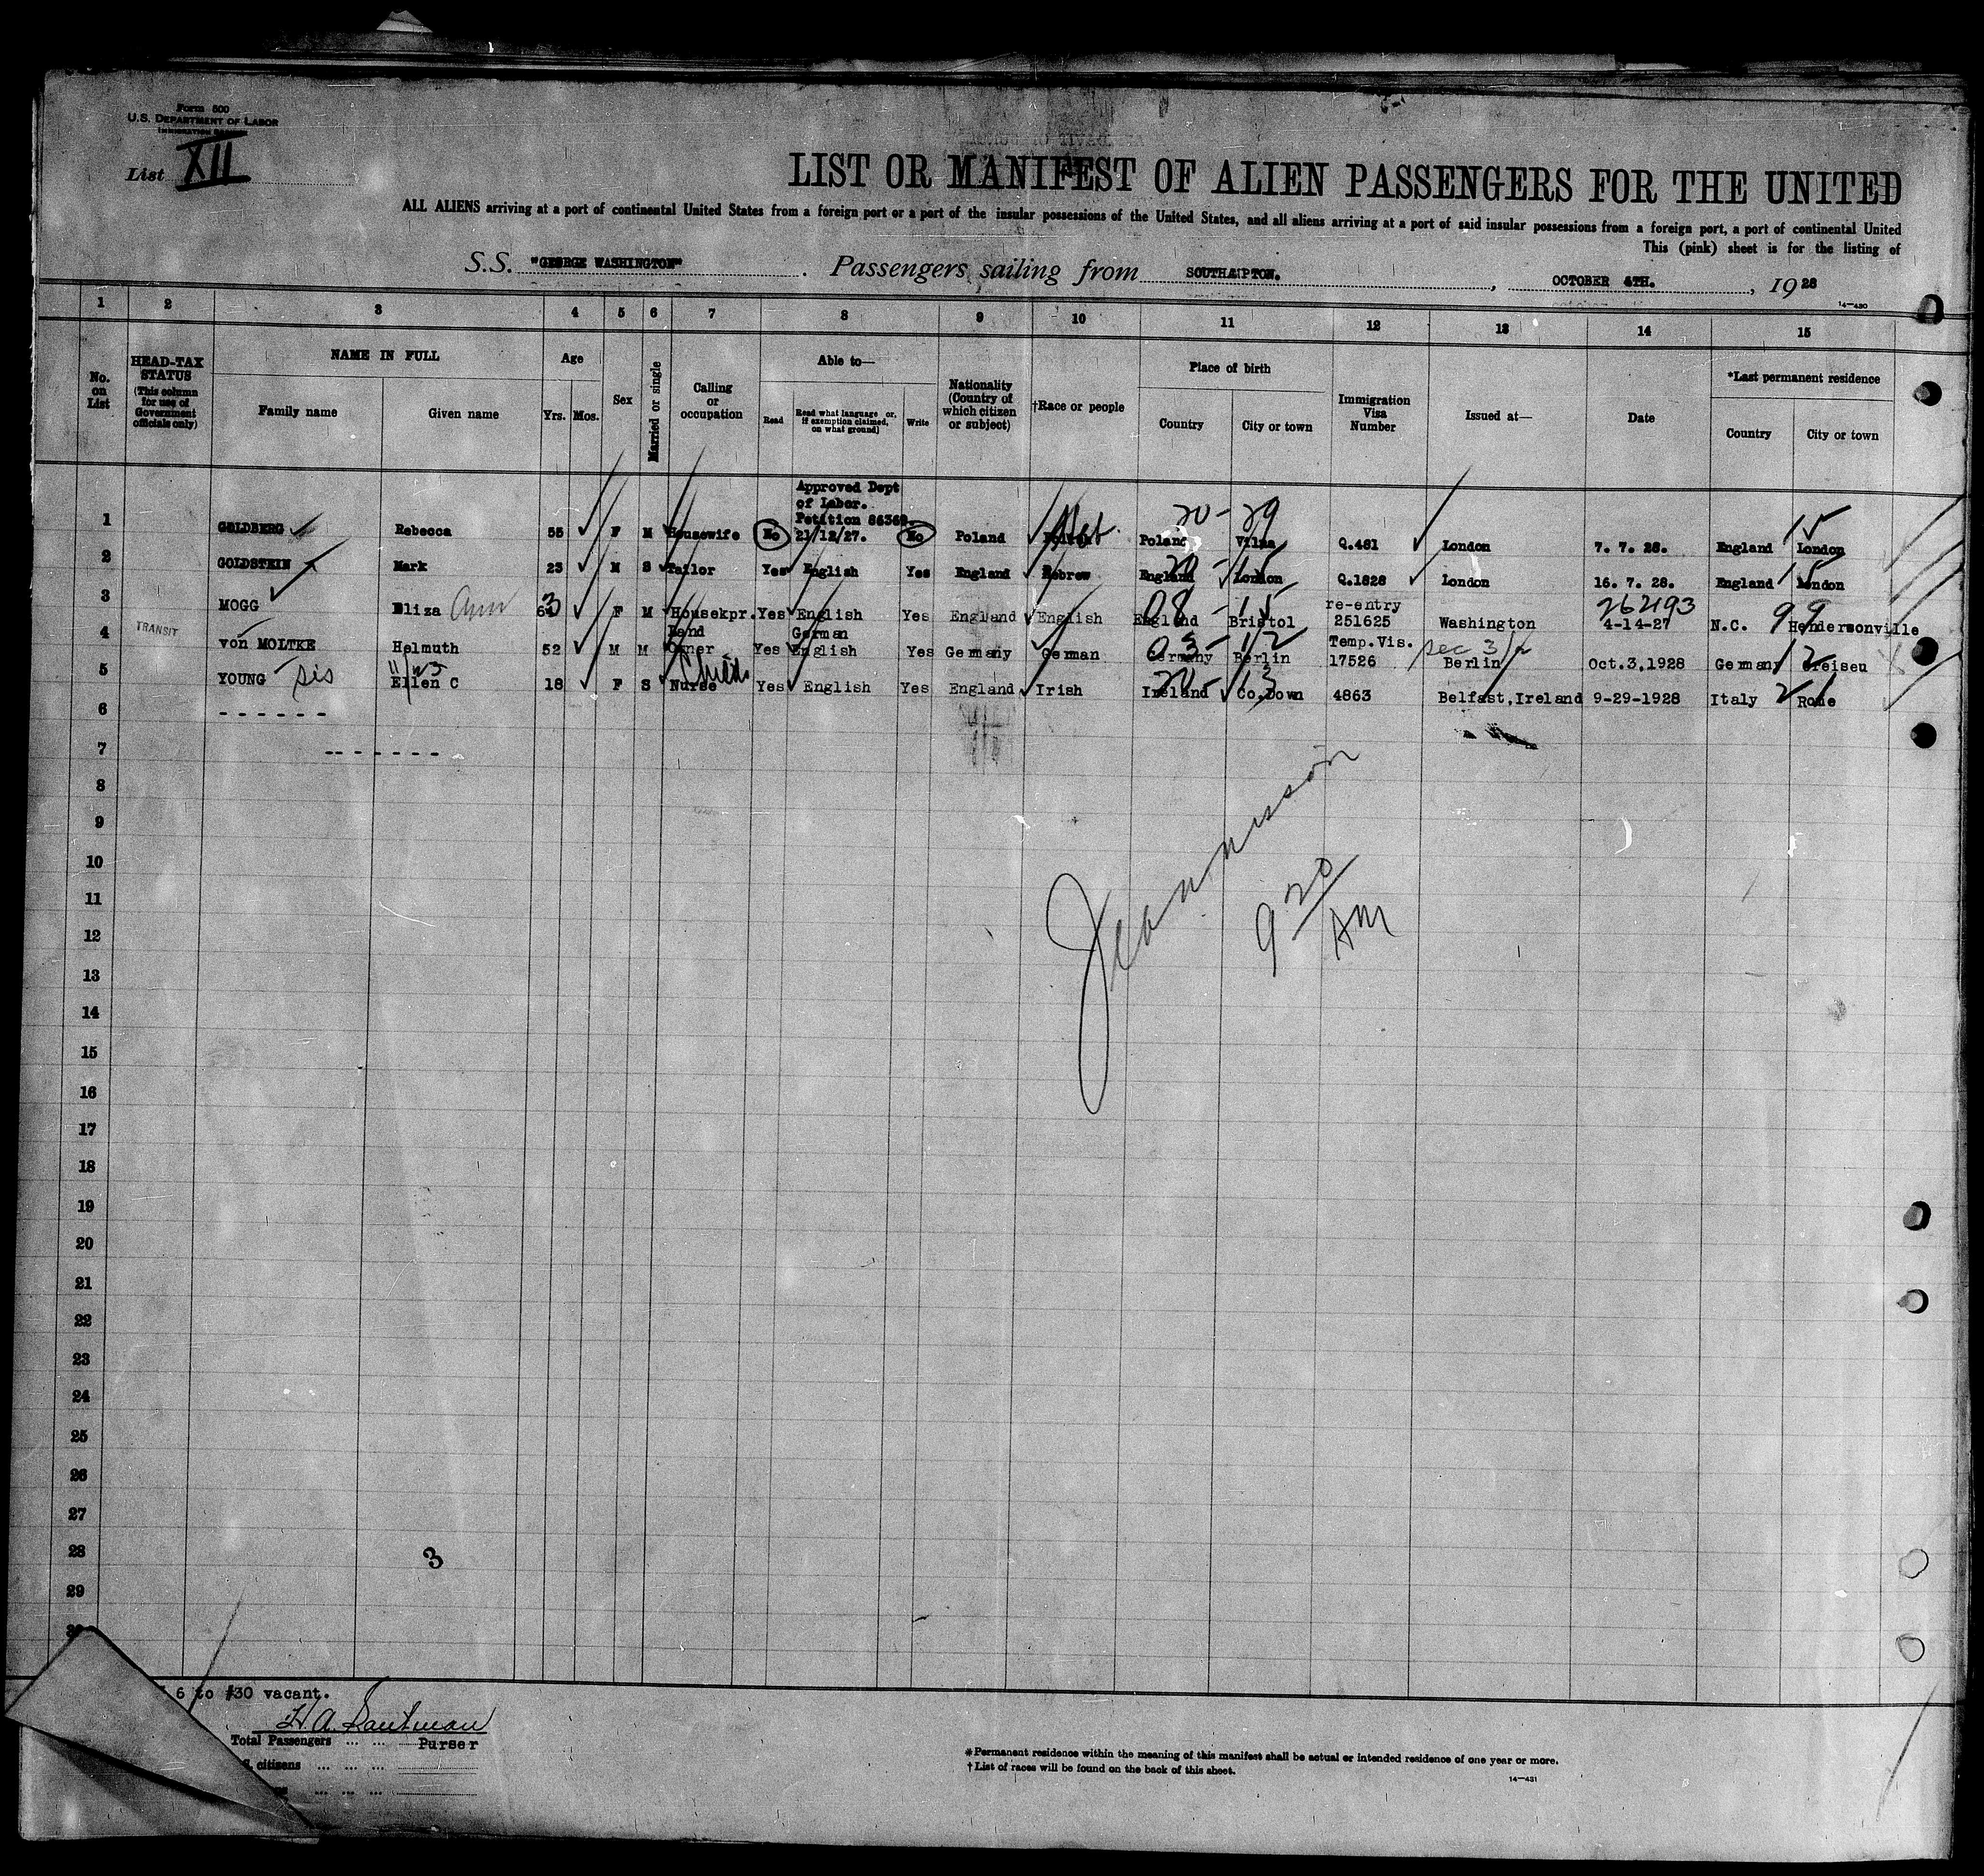 Form 500
U.S. DEPARTMENT OF LABOR
IMMIGRATION
List XII
LIST OR MANIFEST OF ALIEN PASSENGERS FOR THE UNITED
ALL ALIENS arriving at a port of continental United States from a foreign port or a port of the insular possessions of the United States, and all aliens arriving at a port of said insular possessions from a foreign port, a port of continental United
This (pink) sheet is for the listing of
S.S. "GEORGE WASHINGTON" . Passengers sailing from SOUTHAMPTON. , OCTOBER 4TH. , 19 28
14-430
1 2 3 4 5 6 7 8 9 10 11 12 13 14 15
No. on List
HEAD-TAX STATUS (This column for use of Government officials only)
NAME IN FULL Family name Given name
Age Yrs. Mos.
Sex
Married or single
Calling or occupation
Able to— Read Read what language or, if exemption claimed, on what ground] Write
Nationality (Country of which citizen or subject)
†Race or people
Place of birth Country City or town
Immigration Visa Number
Issued at—
Date
*Last permanent residence Country City or town
Approved Dept
of Labor.
Petition 86369
20-29 15
1 GOLDBERG Rebecca 55 F M Housewife No 21/12/27. No Poland Heb. Poland Vilna Q.481 London 7. 7. 28. England London
20-15 15
2 GOLDSTEIN Mark 23 M S Tailor Yes English Yes England Hebrew England London Q.1828 London 16. 7. 28. England London
08-15 re-entry 262193 99
3 MOGG Eliza Ann 63 F M Housekpr. Yes English Yes England English England Bristol 251625 Washington 4-14-27 N.C. Hendersonville
TRANSIT Land German 03-12 Temp.Vis. Sec 3/2 12
4 von MOLTKE Helmuth 52 M M Owner Yes English Yes Germany German Germany Berlin 17526 Berlin Oct.3,1928 Germany Creiseu
Childs 20-13 21
5 YOUNG sis Ellen C 18 F S Nurse Yes English Yes England Irish Ireland Co,Down 4863 Belfast,Ireland 9-29-1928 Italy Rome
6 - - - - - -
7 - - - - - - -
8
9
10
11
12
13
14
15
16
17
18
19
20
21
22
23
24
25
26
27
28
29
30
920 AM
3
6 to #30 vacant.
Total Passengers ... ... Purser
citizens ... ... ...
... ... ...
*Permanent residence within the meaning of this manifest shall be actual or intended residence of one year or more.
†List of races will be found on the back of this sheet.
14-431